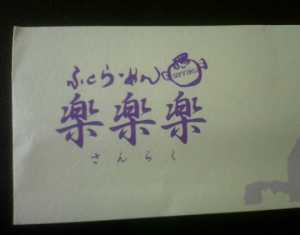 ふくらーめん
楽楽楽
さんらく